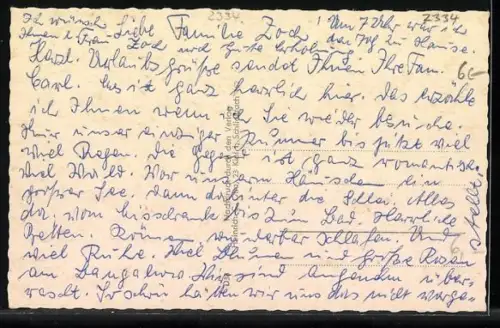 Ich wünsche Liebe Familie Zoch ! Um 7 Uhr war ich
Ihnen & Frau Zoch noch gute Erholung. der Zug zu Hause.
Herzl. Urlaubsgrüße sendet Ihnen Ihre Fam.
Carl. Es ist ganz herrlich hier. Das erzähle
ich Ihnen wenn ich Sie wieder besuche.
Nur unser einziger Kummer bis jetzt viel
viel Regen. Die Gegend ist ganz romantisch.
Viel Wald. Vor unserm Häuschen ein
großer See, dann dahinter die Schlei. Alles
da. vom bis zum Bad. Herrliche
Betten. Können wunderbar schlafen. Und
viel Ruhe. Viel Blumen und große Rosen
am Bungalow. Wir sind angenehm über-
rascht. So schön hätten wir uns das nicht vorge-
stellt.
2334
2334
6E